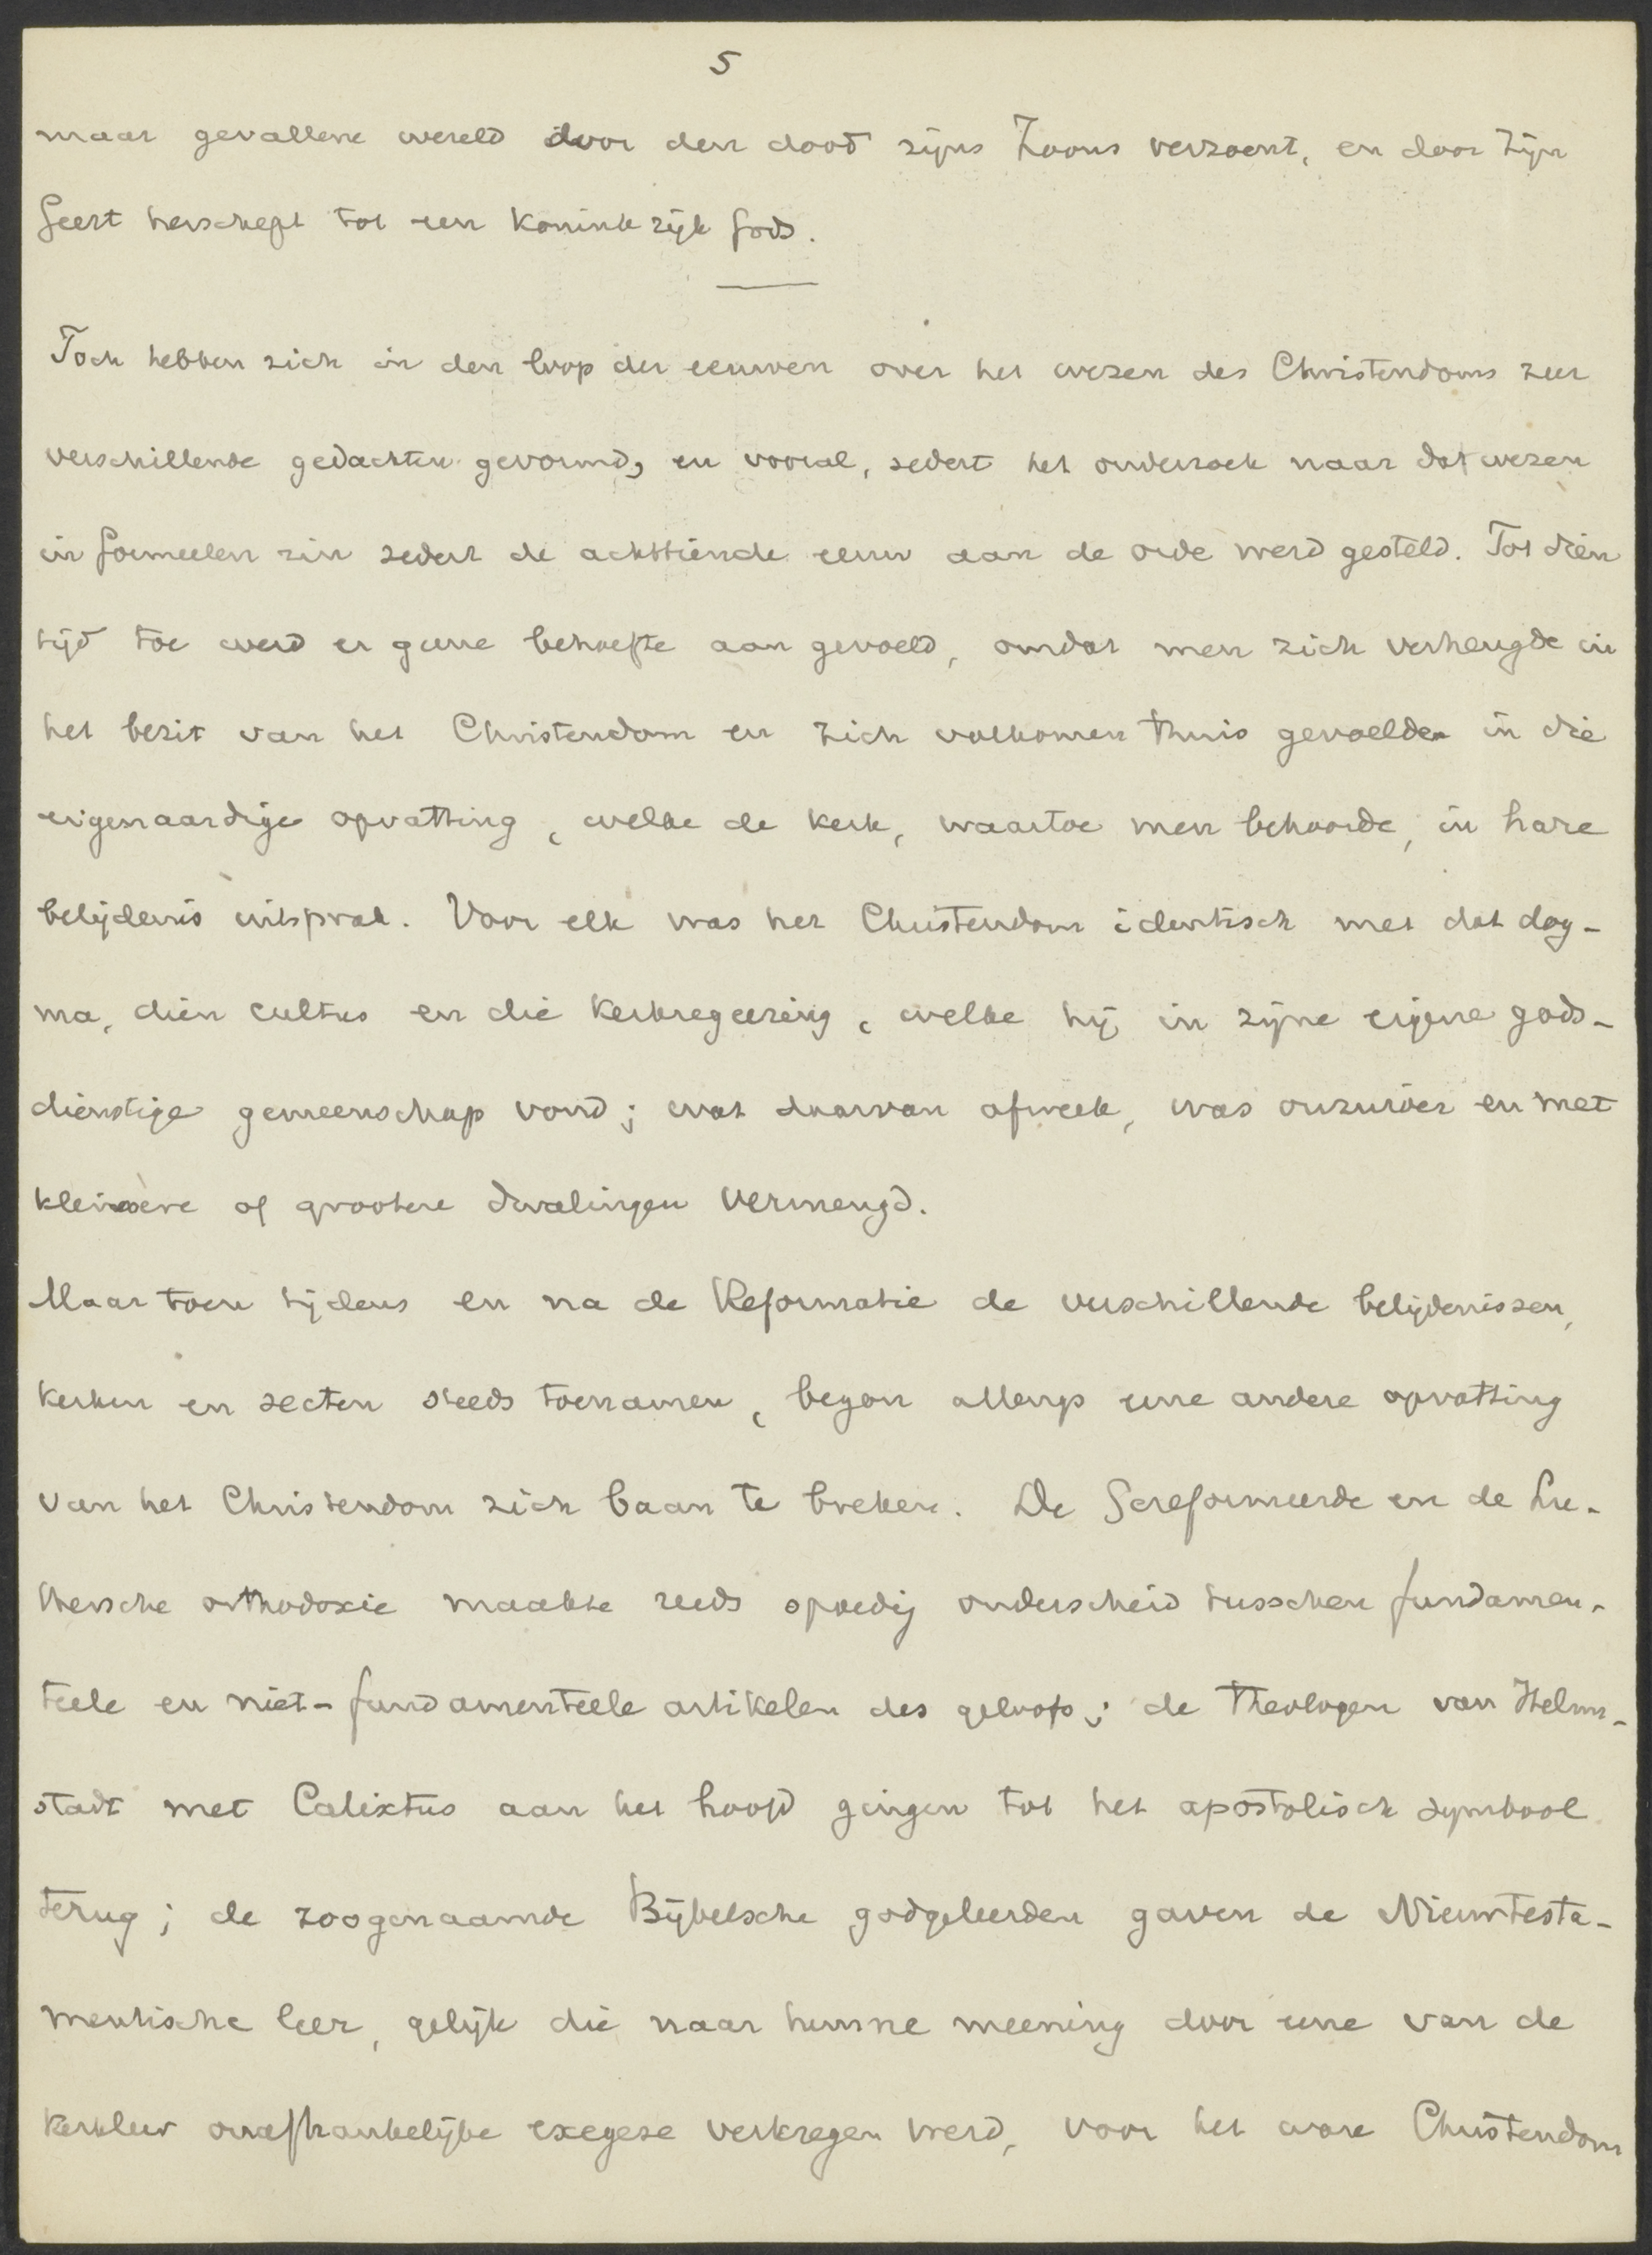 5
maar gevallene wereld door den dood zijns Zoons verzoent, en door Zijn
Geest herschept tot een Koninkrijk Gods.
Toch hebben zich in den loop der eeuwen over het wezen des Christendoms zeer
verschillende gedachten gevormd, en vooral, sedert het onderzoek naar dat wezen
in formeelen zin sedert de achttiende eeuw aan de orde werd gesteld. Tot dien
tijd toe werd er geene behoefte aan gevoeld, omdat men zich verheugde in
het bezit van het Christendom en zich volkomen thuis gevoelde in die
eigenaardige opvatting, welke de kerk, waartoe men behoorde, in hare
belijdenis uitsprak. Voor elk was het Christendom identisch met dat dog-
ma, dien cultus en die kerkregeering, welke hij in zijne eigene gods-
dienstige gemeenschap vond; wat daarvan afweek, was onzuiver en met
kleinere of grootere dwalingen vermengd.
Maar toen tijdens en na de Reformatie de verschillende belijdenissen,
kerken en secten steeds toenamen, begon allengs eene andere opvatting
van het Christendom zich baan te breken. De Gereformeerde en de Lu-
thersche orthodoxie maakte reeds spoedig onderscheid tusschen fundamen-
teele en niet-fundamenteele artikelen des geloofs; de theologen van Helm-
stadt met Calixtus aan het hoofd gingen tot het apostolisch symbool
terug; de zoogenaamde Bijbelsche godgeleerden gaven de Nieuwtesta-
mentische leer, gelijk die naar hunne meening door eene van de
kerkleer onafhankelijke exegese verkregen werd, voor het ware Christendom